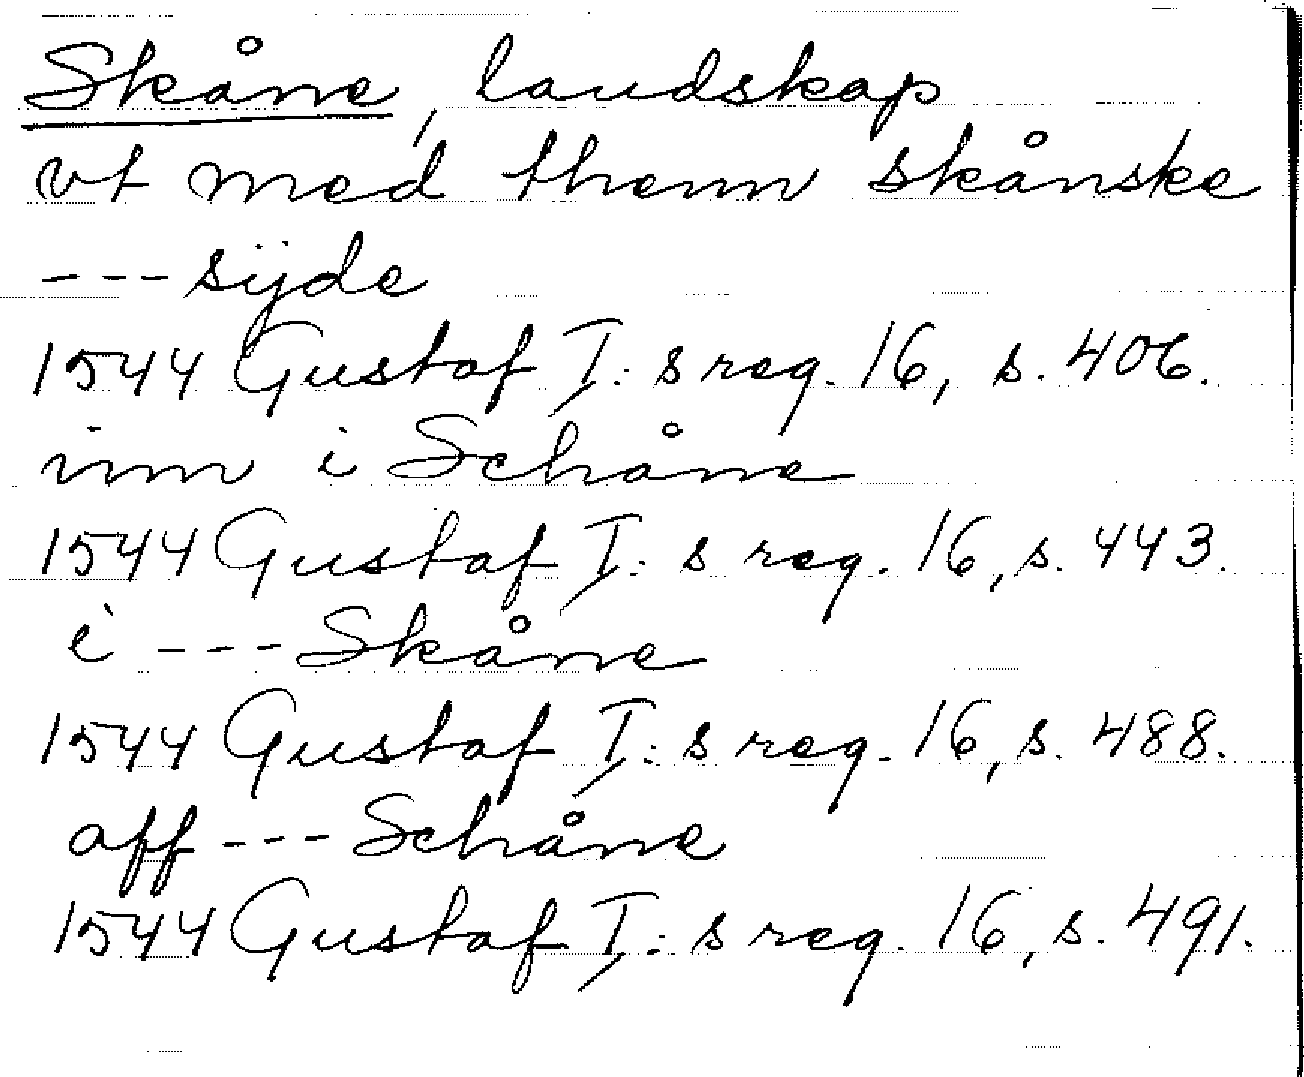 Skåne, landskap
vt med thenn skånske
--- sÿde
1544 Gustaf I:s reg. 16, s. 406.
inn i Schåne
1544 Gustaf I:s reg. 16, s. 443.
i --- Skåne
1544 Gustaf I:s reg. 16, s. 488.
aff --- Schåne
1544 Gustaf I:s reg. 16, s. 491.